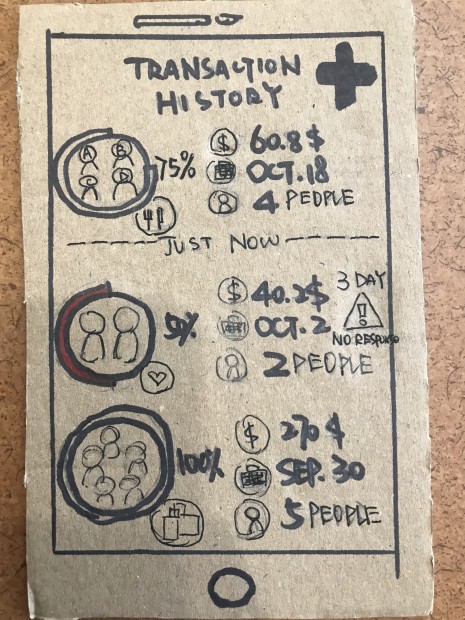 TRANSACTION
HISTORY
A B
C D
75%
$ 60.8$
OCT.18
4 PEOPLE
JUST NOW
50%
$ 40.2$
OCT.2
2 PEOPLE
3 DAY
!
NO RESPONSE
100%
$ 270$
SEP.30
5 PEOPLE